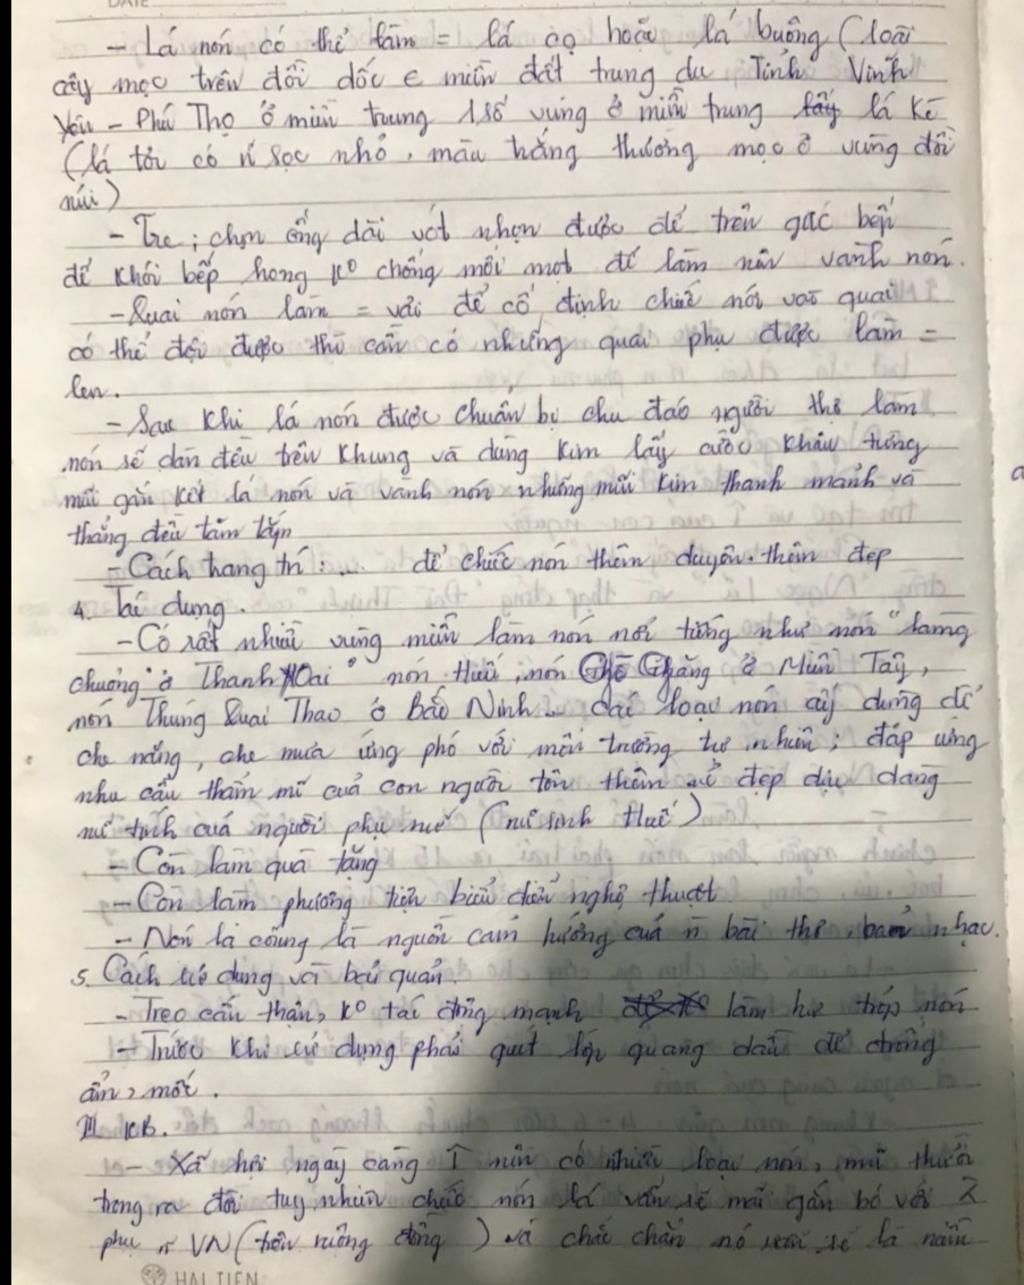 DATE
- Lá nón có thể làm = lá cọ hoặc lá buông (loài
cây mọc trên đồi dốc ∈ miền đất trung du Tỉnh Vĩnh
Yên - Phú Thọ ở miền trung 1 số vùng ở miền trung lấy lá kè
(lá tơi có sọc nhỏ, màu trắng thường mọc ở vùng đồi
núi)
- Tre; chọn ống dài vót nhọn được để trên gác bếp
để khói bếp hong k° chống mối mọt để làm nên vành nón.
- Quai nón làm = vải để cố định chiếc nón với quai
có thể đội được thì cần có những quai phụ được làm =
len.
- Sau khi lá nón được chuẩn bị chu đáo người thợ làm
nón sẽ dàn đều trên khung và dùng kim lấy cước khâu từng
mũi gắn kết lá nón và vành nón những mũi kim thanh mảnh và
thẳng đều tăm tắp
- Cách trang trí: ... để chiếc nón thêm duyên. thêm đẹp
4. Tác dụng.
- Có rất nhiều vùng miền làm nón nổi tiếng như nón "làng
chuông" ở Thanh Oai nón Huế, nón Gò Găng ở Miền Tây,
nón Thúng Quai Thao ở Bắc Ninh... các loại nón ấy dùng để
che nắng, che mưa ứng phó với môi trường tự nhiên; đáp ứng
nhu cầu thẩm mĩ của con người tôn thêm đẹp dịu dàng
nữ tính của người phụ nữ (nữ sinh Huế)
- Còn làm quà tặng
- Còn làm phương tiện biểu diễn nghệ thuật
- Nón lá cũng là nguồn cảm hứng của n bài thơ, bản nhạc.
5. Cách sử dụng và bảo quản
- Treo cẩn thận, k° tác động mạnh làm hư nón
- Trước khi sử dụng phải quét lớp quang dầu để chống
ẩm, mốc.
III KB.
- Xã hội ngày càng ↑ nên có nhiều loại nón, mũ thời
trang ra đời tuy nhiên chiếc nón lá vẫn sẽ mãi gắn bó với
phụ n VN (trên ruộng đồng) và chắc chắn nó sẽ là niềm
HẢI TIẾN